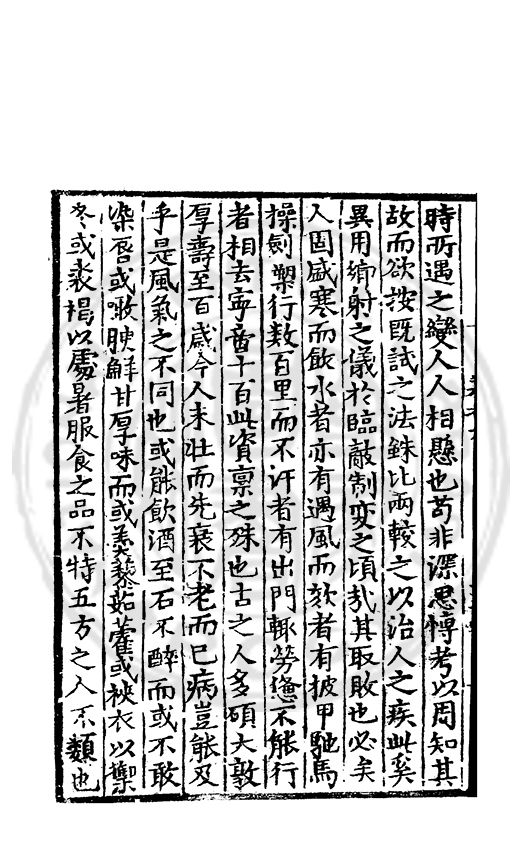 時所遇之變人人相懸也苟非深思慱考以周知其
故而欲按既試之法銖比兩較之以治人之疾此奚
異用鄉射之儀於臨敵制变之頃㦲其取敗也必矣
人固感寒而飲水者亦有遇風而欬者有披甲馳馬
操劍槊行数百里而不汗者有出門輙勞憊不能行
者相去寧啻千百此資禀之殊也古之人多碩大敦
厚壽至百歲今人未壯而先衰不老而已病豈能及
乎是風氣之不同也或能飲酒至石不醉而或不敢
染唇或噉腴解甘厚味而或羙藜茹藿或袂衣以禦
冬或裘褐以處暑服食之品不特五方之人不類也